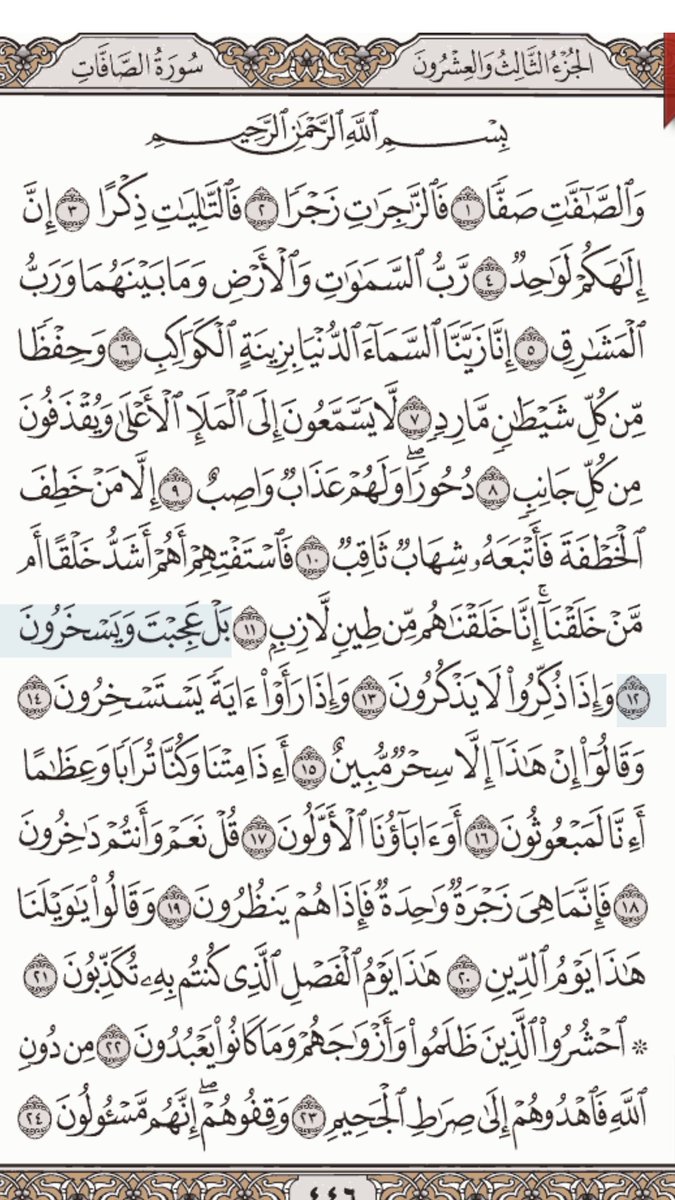 الجُزْءُ الثَّالِثُ وَالعِشْرُونَ سُورَةُ الصَّافَّاتِ
بِسْمِ ٱللَّهِ ٱلرَّحْمَٰنِ ٱلرَّحِيمِ
وَٱلصَّٰٓفَّٰتِ صَفًّا ١ فَٱلزَّٰجِرَٰتِ زَجْرًا ٢ فَٱلتَّٰلِيَٰتِ ذِكْرًا ٣ إِنَّ
إِلَٰهَكُمْ لَوَٰحِدٌ ٤ رَّبُّ ٱلسَّمَٰوَٰتِ وَٱلْأَرْضِ وَمَا بَيْنَهُمَا وَرَبُّ
ٱلْمَشَٰرِقِ ٥ إِنَّا زَيَّنَّا ٱلسَّمَآءَ ٱلدُّنْيَا بِزِينَةٍ ٱلْكَوَاكِبِ ٦ وَحِفْظًا
مِّن كُلِّ شَيْطَٰنٍ مَّارِدٍ ٧ لَّا يَسَّمَّعُونَ إِلَى ٱلْمَلَإِ ٱلْأَعْلَىٰ وَيُقْذَفُونَ
مِن كُلِّ جَانِبٍ ٨ دُحُورًاۖ وَلَهُمْ عَذَابٌ وَاصِبٌ ٩ إِلَّا مَنْ خَطِفَ
ٱلْخَطْفَةَ فَأَتْبَعَهُۥ شِهَابٌ ثَاقِبٌ ١٠ فَٱسْتَفْتِهِمْ أَهُمْ أَشَدُّ خَلْقًا أَم
مَّنْ خَلَقْنَآۚ إِنَّا خَلَقْنَٰهُم مِّن طِينٍ لَّازِبٍ ١١ بَلْ عَجِبْتَ وَيَسْخَرُونَ
١٢ وَإِذَا ذُكِّرُوا۟ لَا يَذْكُرُونَ ١٣ وَإِذَا رَأَوْا۟ ءَايَةً يَسْتَسْخِرُونَ ١٤
وَقَالُوٓا۟ إِنْ هَٰذَآ إِلَّا سِحْرٌ مُّبِينٌ ١٥ أَءِذَا مِتْنَا وَكُنَّا تُرَابًا وَعِظَٰمًا
أَءِنَّا لَمَبْعُوثُونَ ١٦ أَوَءَابَآؤُنَا ٱلْأَوَّلُونَ ١٧ قُلْ نَعَمْ وَأَنتُمْ دَٰخِرُونَ
١٨ فَإِنَّمَا هِىَ زَجْرَةٌ وَٰحِدَةٌ فَإِذَا هُمْ يَنظُرُونَ ١٩ وَقَالُوا۟ يَٰوَيْلَنَا
هَٰذَا يَوْمُ ٱلدِّينِ ٢٠ هَٰذَا يَوْمُ ٱلْفَصْلِ ٱلَّذِى كُنتُم بِهِۦ تُكَذِّبُونَ ٢١
۞ ٱحْشُرُوا۟ ٱلَّذِينَ ظَلَمُوا۟ وَأَزْوَٰجَهُمْ وَمَا كَانُوا۟ يَعْبُدُونَ ٢٢ مِن دُونِ
ٱللَّهِ فَٱهْدُوهُمْ إِلَىٰ صِرَٰطِ ٱلْجَحِيمِ ٢٣ وَقِفُوهُمْۖ إِنَّهُم مَّسْـُٔولُونَ ٢٤
٤٤٦